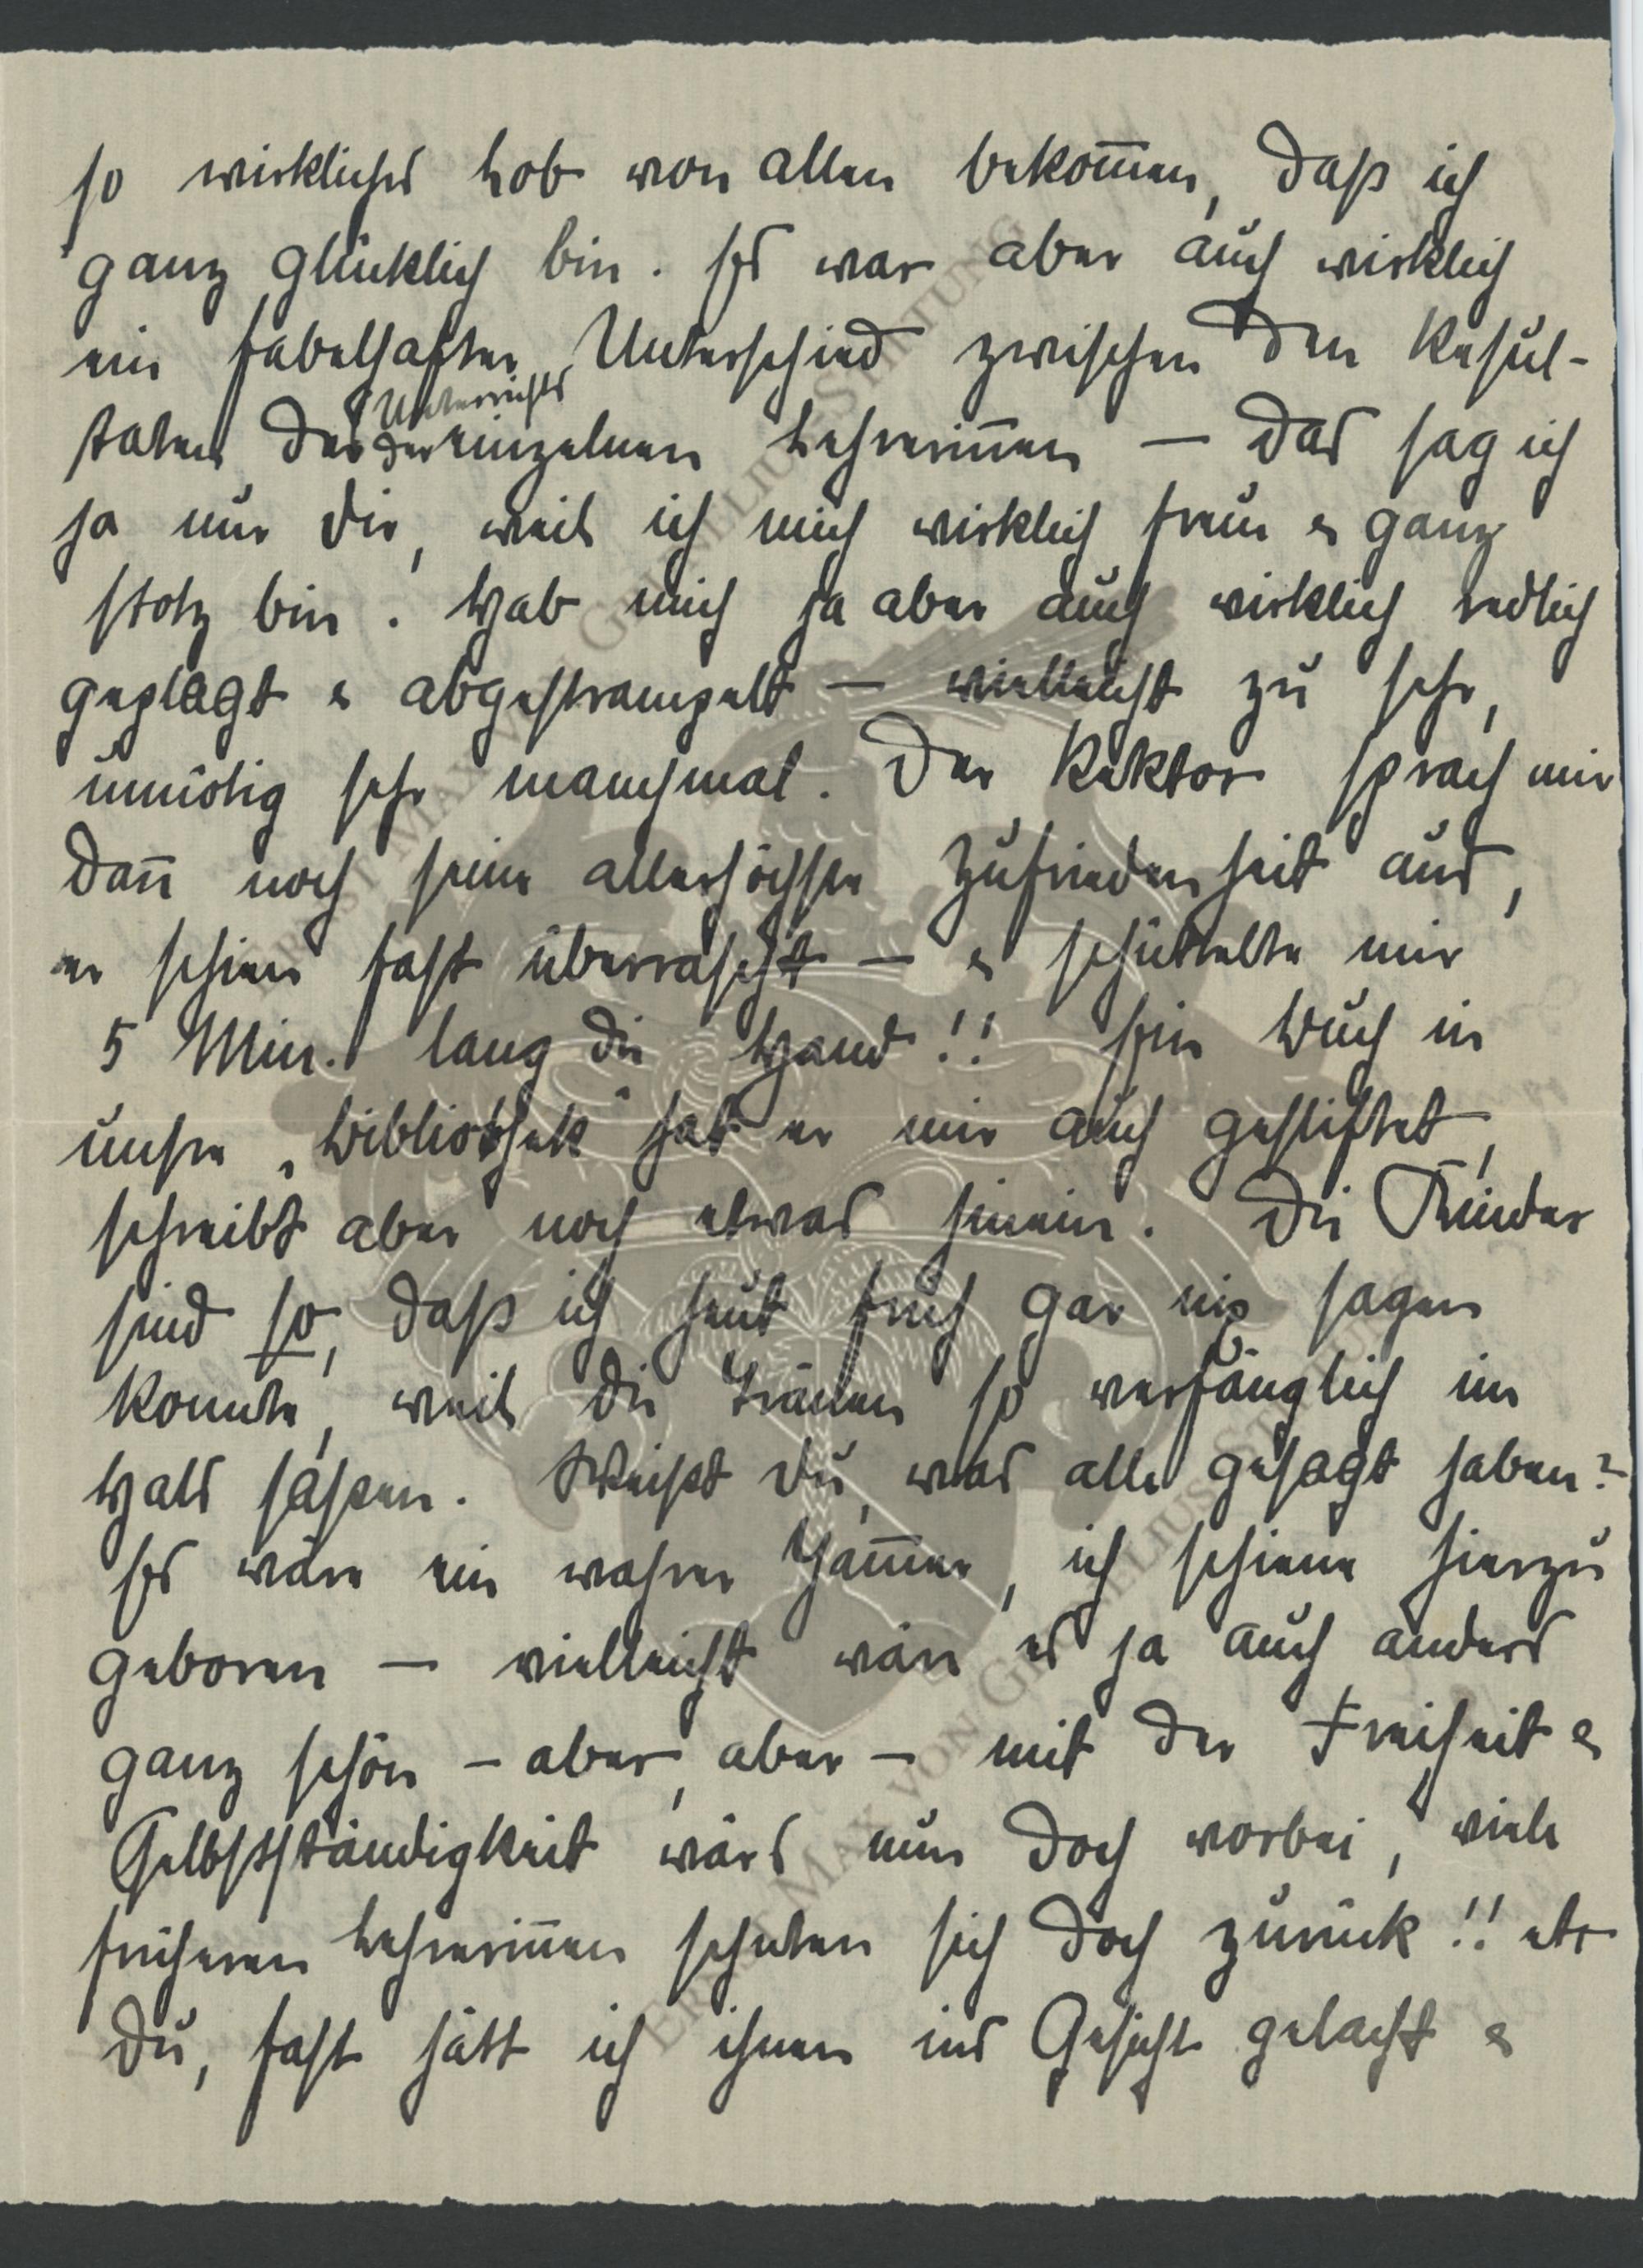 so wirkliches Lob von allen bekom̅en, daß ich
ganz glücklich bin. Es war aber auch wirklich
ein fabelhafter Unterschied zwischen den Resul-
taten des Unterrichts der einzelnen Lehrerin̅en — das sag ich
ja nur dir, weil ich mich wirklich freue & ganz
stolz bin. Hab mich ja aber auch wirklich redlich
geplagt & abgestrampelt — vielleicht zu sehr,
unnötig sehr manchmal. Der Rektor sprach mir
dan̅ noch seine allerhöchste Zufriedenheit aus,
er schien fast überrascht — & schüttelte mir
5 Min. lang die Hand!! Ein Buch in
unsre „Bibliothek“ hat er mir auch gestiftet,
schreibt aber noch etwas hinein. Die Kinder
sind so, daß ich heut früh gar nix sagen
konnte, weil die Tränen so verfänglich im
Hals saßen. Weißt du, was alle gesagt haben?
Es wäre ein wahrer Jam̅er, ich schiene hierzu
geboren — vielleicht wär es ja auch anders
ganz schön — aber, aber — mit der Freiheit &
Selbstständigkeit wärs nun doch vorbei, viele
früheren Lehrerin̅en sehnten sich doch zurück!! etc
Du, fast hätt ich ihnen ins Gesicht gelacht &
ERNST MAX VON GRUNELIUS-STIFTUNG
ERNST MAX VON GRUNELIUS-STIFTUNG